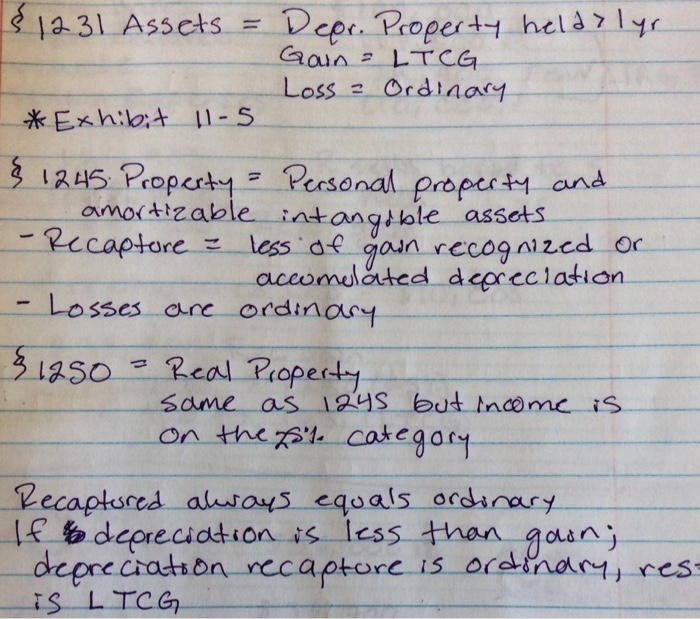 § 1231 Assets = Depr. Property held > 1yr
Gain = LTCG
Loss = Ordinary
* Exhibit 11-5
§ 1245 Property = Personal property and
amortizable intangible assets
- Recapture = less of gain recognized or
accumulated depreciation
- Losses are ordinary
§ 1250 = Real Property
same as 1245 but income is
on the 25% category
Recaptured always equals ordinary
If depreciation is less than gain;
depreciation recapture is ordinary, res
is LTCG